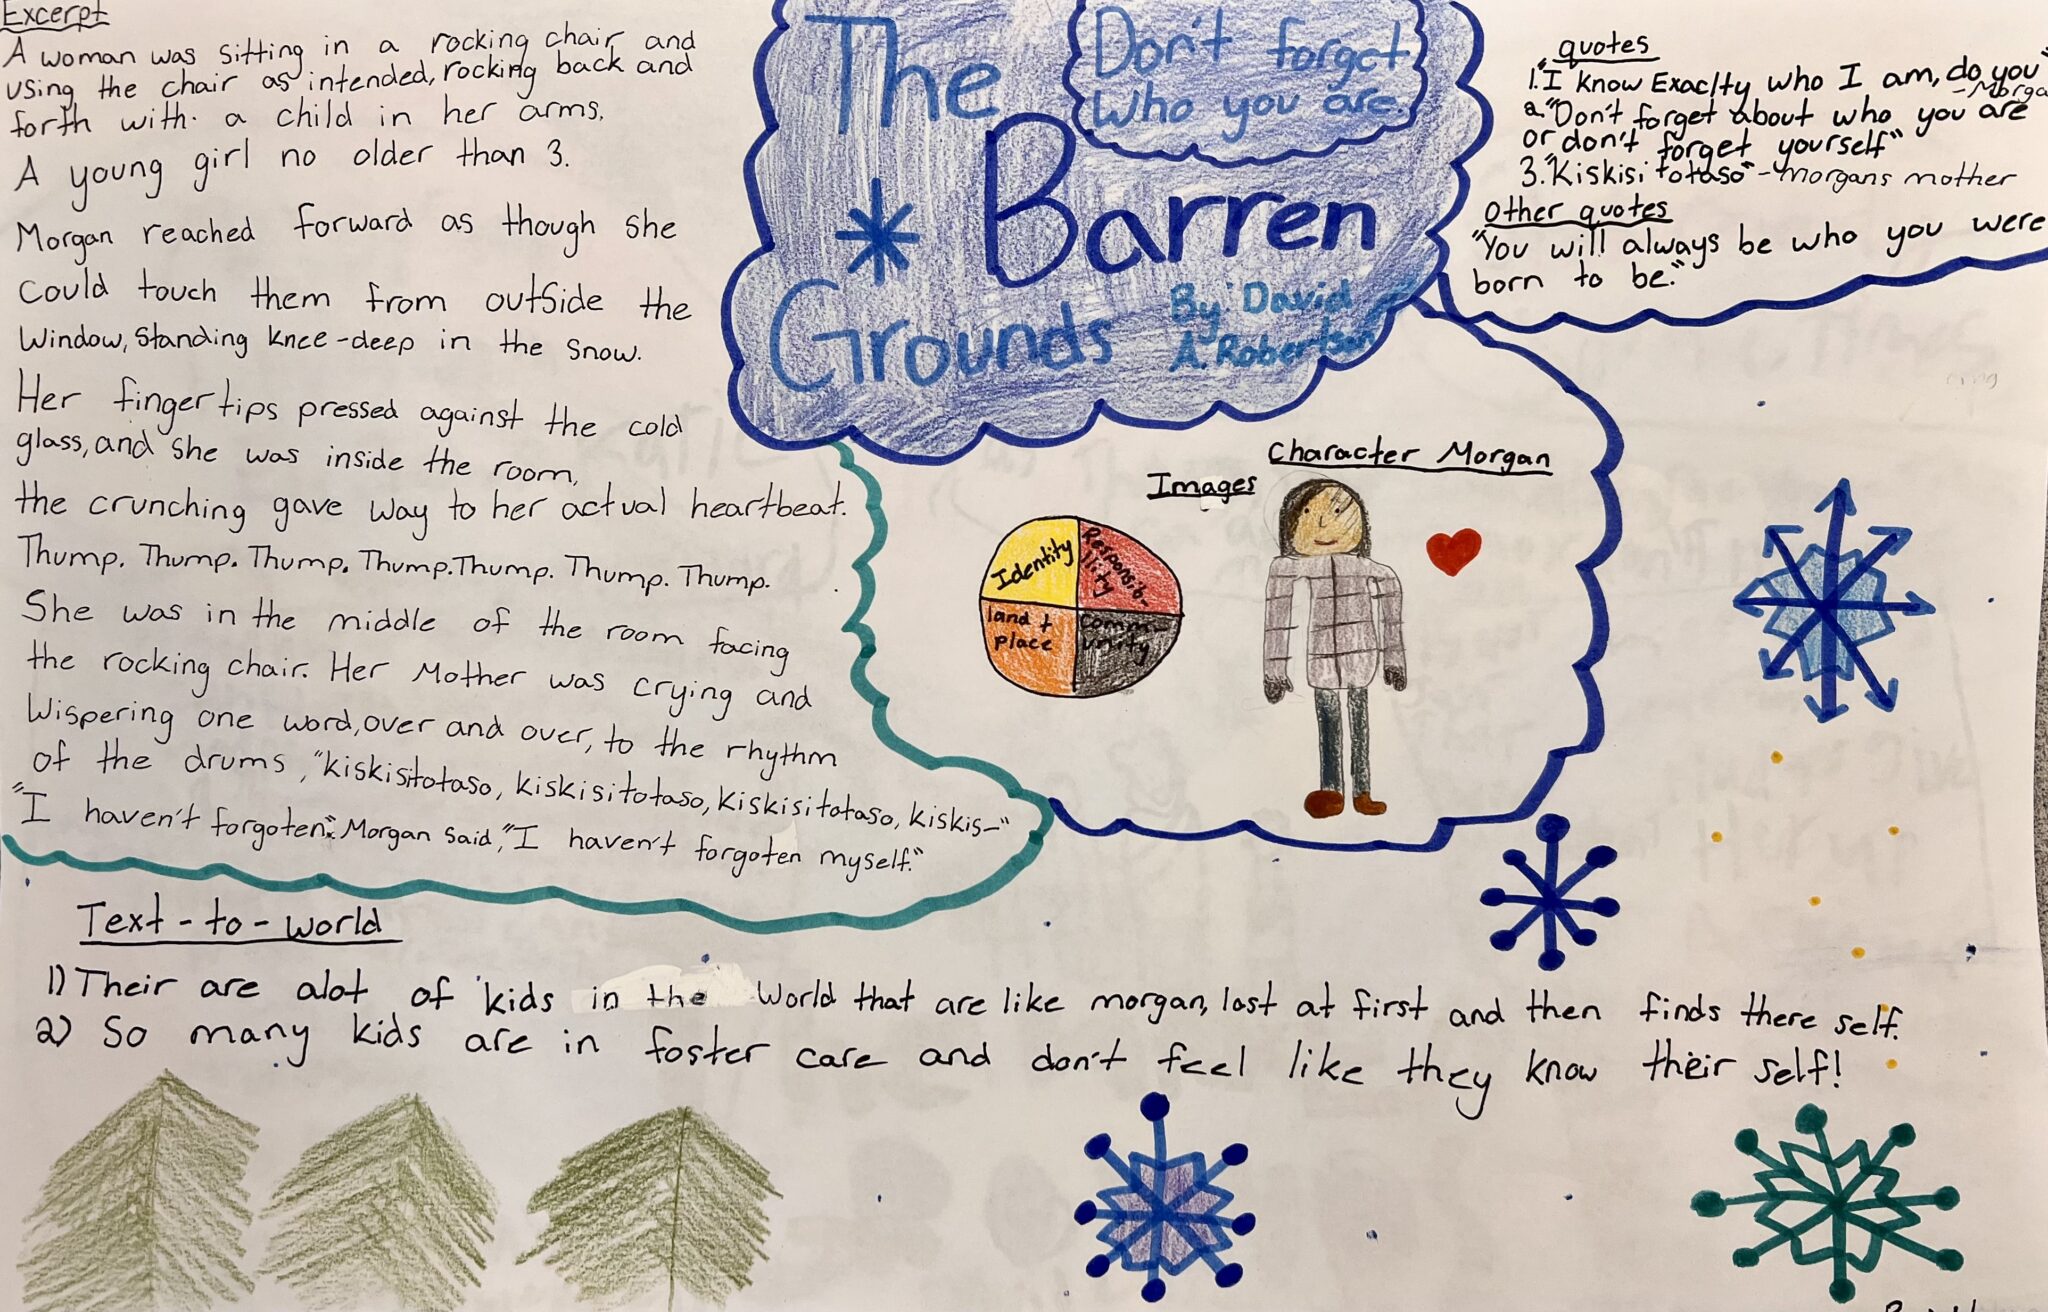 Excerpt
A woman was sitting in a rocking chair and
using the chair as intended, rocking back and
forth with a child in her arms.
A young girl no older than 3.
Morgan reached forward as though she
could touch them from outside the
window, standing knee-deep in the snow.
Her finger tips pressed against the cold
glass, and she was inside the room,
the crunching gave way to her actual heartbeat.
Thump. Thump. Thump. Thump. Thump. Thump. Thump.
She was in the middle of the room facing
the rocking chair. Her Mother was crying and
wispering one word, over and over, to the rhythm
of the drums, "kiskisitotaso, kiskisitotaso, kiskisitotaso, kiskis-"
"I haven't forgoten". Morgan said, "I haven't forgoten myself."
The
Barren
Grounds
Don't forget
who you are.
By: David
A. Robertson
quotes
1. "I know Exaclty who I am, do you"
-Morga
2. "Don't forget about who you are
or don't forget yourself"
3. "Kiskisitotaso" - morgans mother
Other quotes
"You will always be who you were
born to be."
Images
Character Morgan
Identity
Responsib-
ility
land +
place
comm-
unity
Text-to-world
1) Their are alot of kids in the world that are like morgan, lost at first and then finds there self.
2) So many kids are in foster care and don't feel like they know their self!